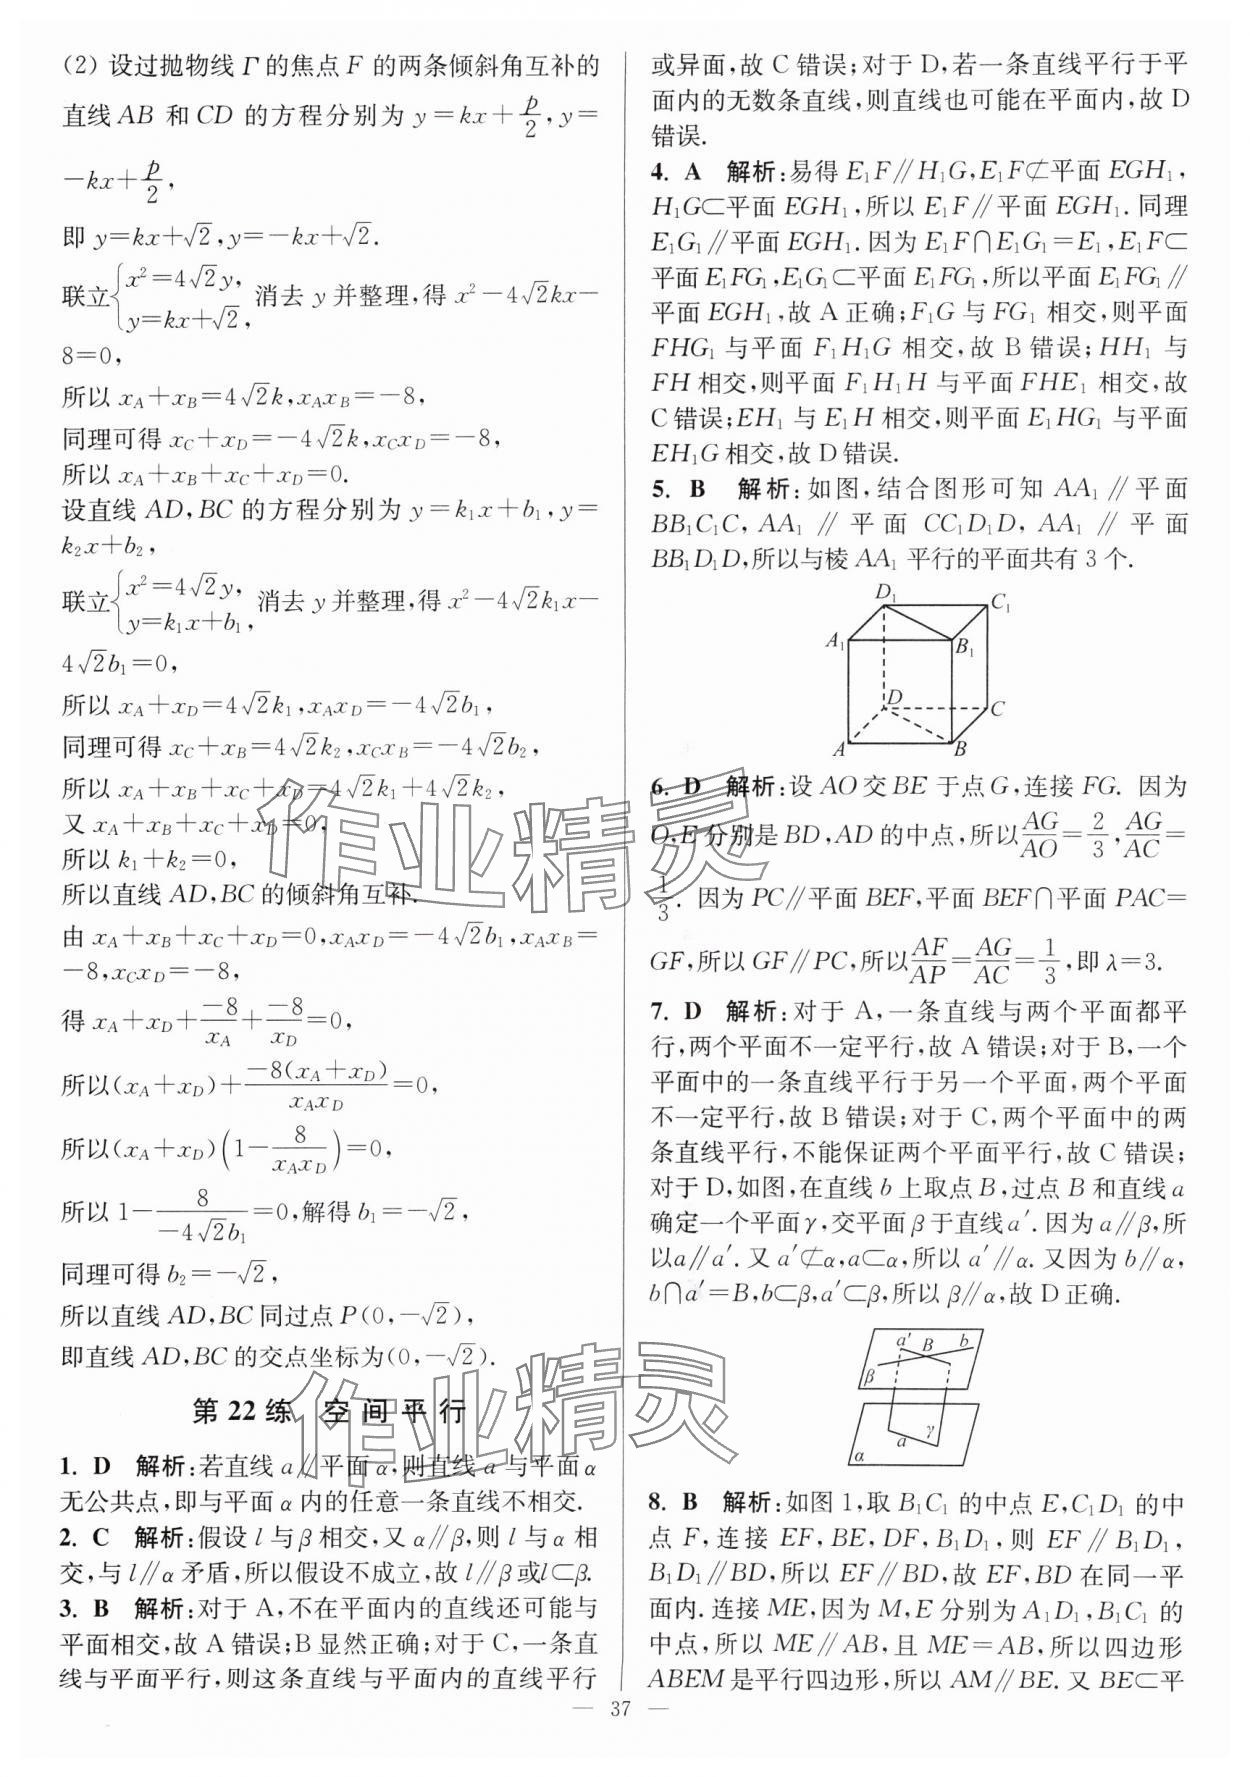 (2) 设过抛物线 Γ 的焦点 F 的两条倾斜角互补的
直线 AB 和 CD 的方程分别为 y=kx+p/2, y=
-kx+p/2,
即 y=kx+√2, y=-kx+√2.
联立{x²=4√2y, y=kx+√2, 消去 y 并整理,得 x²-4√2kx-
8=0,
所以 x_A+x_B=4√2k, x_Ax_B=-8,
同理可得 x_C+x_D=-4√2k, x_Cx_D=-8,
所以 x_A+x_B+x_C+x_D=0.
设直线 AD, BC 的方程分别为 y=k₁x+b₁, y=
k₂x+b₂,
联立{x²=4√2y, y=k₁x+b₁, 消去 y 并整理,得 x²-4√2k₁x-
4√2b₁=0,
所以 x_A+x_D=4√2k₁, x_Ax_D=-4√2b₁,
同理可得 x_C+x_B=4√2k₂, x_Cx_B=-4√2b₂,
所以 x_A+x_B+x_C+x_D=4√2k₁+4√2k₂,
又 x_A+x_B+x_C+x_D=0,
所以 k₁+k₂=0,
所以直线 AD, BC 的倾斜角互补.
由 x_A+x_B+x_C+x_D=0, x_Ax_D=-4√2b₁, x_Ax_B=
-8, x_Cx_D=-8,
得 x_A+x_D+(-8)/x_A+(-8)/x_D=0,
所以(x_A+x_D)+(-8(x_A+x_D))/(x_Ax_D)=0,
所以(x_A+x_D)(1-8/(x_Ax_D))=0,
所以 1-8/(-4√2b₁)=0,解得 b₁=-√2,
同理可得 b₂=-√2,
所以直线 AD, BC 同过点 P(0,-√2),
即直线 AD, BC 的交点坐标为(0,-√2).
第 22 练 空间平行
1. D 解析:若直线 a∥平面 α,则直线 a 与平面 α
无公共点,即与平面 α 内的任意一条直线不相交.
2. C 解析:假设 l 与 β 相交,又 α∥β,则 l 与 α 相
交,与 l∥α 矛盾,所以假设不成立,故 l∥β 或 l⊂β.
3. B 解析:对于 A,不在平面内的直线还可能与
平面相交,故 A 错误;B 显然正确;对于 C,一条直
线与平面平行,则这条直线与平面内的直线平行
或异面,故 C 错误;对于 D,若一条直线平行于平
面内的无数条直线,则直线也可能在平面内,故 D
错误.
4. A 解析:易得 E₁F∥H₁G,E₁F⊄平面 EGH₁,
H₁G⊂平面 EGH₁,所以 E₁F∥平面 EGH₁.同理
E₁G₁∥平面 EGH₁.因为 E₁F∩E₁G₁=E₁,E₁F⊂
平面 E₁FG₁,E₁G₁⊂平面 E₁FG₁,所以平面 E₁FG₁∥
平面 EGH₁,故 A 正确;F₁G 与 FG₁ 相交,则平面
FHG₁ 与平面 F₁H₁G 相交,故 B 错误;HH₁ 与
FH 相交,则平面 F₁H₁H 与平面 FHE₁ 相交,故
C 错误;EH₁ 与 E₁H 相交,则平面 E₁HG₁ 与平面
EH₁G 相交,故 D 错误.
5. B 解析:如图,结合图形可知 AA₁∥平面
BB₁C₁C,AA₁∥平面 CC₁D₁D,AA₁∥平面
BB₁D₁D,所以与棱 AA₁ 平行的平面共有 3 个.
D₁
C₁
A₁
B₁
D
C
A
B
6. D 解析:设 AO 交 BE 于点 G,连接 FG. 因为
O,E 分别是 BD,AD 的中点,所以 AG/AO=2/3, AG/AC=
1/3. 因为 PC∥平面 BEF,平面 BEF∩平面 PAC=
GF,所以 GF∥PC,所以 AF/AP=AG/AC=1/3,即 λ=3.
7. D 解析:对于 A,一条直线与两个平面都平
行,两个平面不一定平行,故 A 错误;对于 B,一个
平面中的一条直线平行于另一个平面,两个平面
不一定平行,故 B 错误;对于 C,两个平面中的两
条直线平行,不能保证两个平面平行,故 C 错误;
对于 D,如图,在直线 b 上取点 B,过点 B 和直线 a
确定一个平面 γ,交平面 β 于直线 a′.因为 a∥β,所
以 a∥a′.又 a′⊄α,a⊂α,所以 a′∥α.又因为 b∥α,
b∩a′=B,b⊂β,a′⊂β,所以 β∥α,故 D 正确.
a′
B
b
β
a
γ
α
8. B 解析:如图 1,取 B₁C₁ 的中点 E,C₁D₁ 的中
点 F,连接 EF,BE,DF,B₁D₁,则 EF∥B₁D₁,
B₁D₁∥BD,所以 EF∥BD,故 EF,BD 在同一平
面内.连接 ME,因为 M,E 分别为 A₁D₁,B₁C₁ 的
中点,所以 ME∥AB,且 ME=AB,所以四边形
ABEM 是平行四边形,所以 AM∥BE.又 BE⊂平
— 37 —
作业精灵
作业精灵